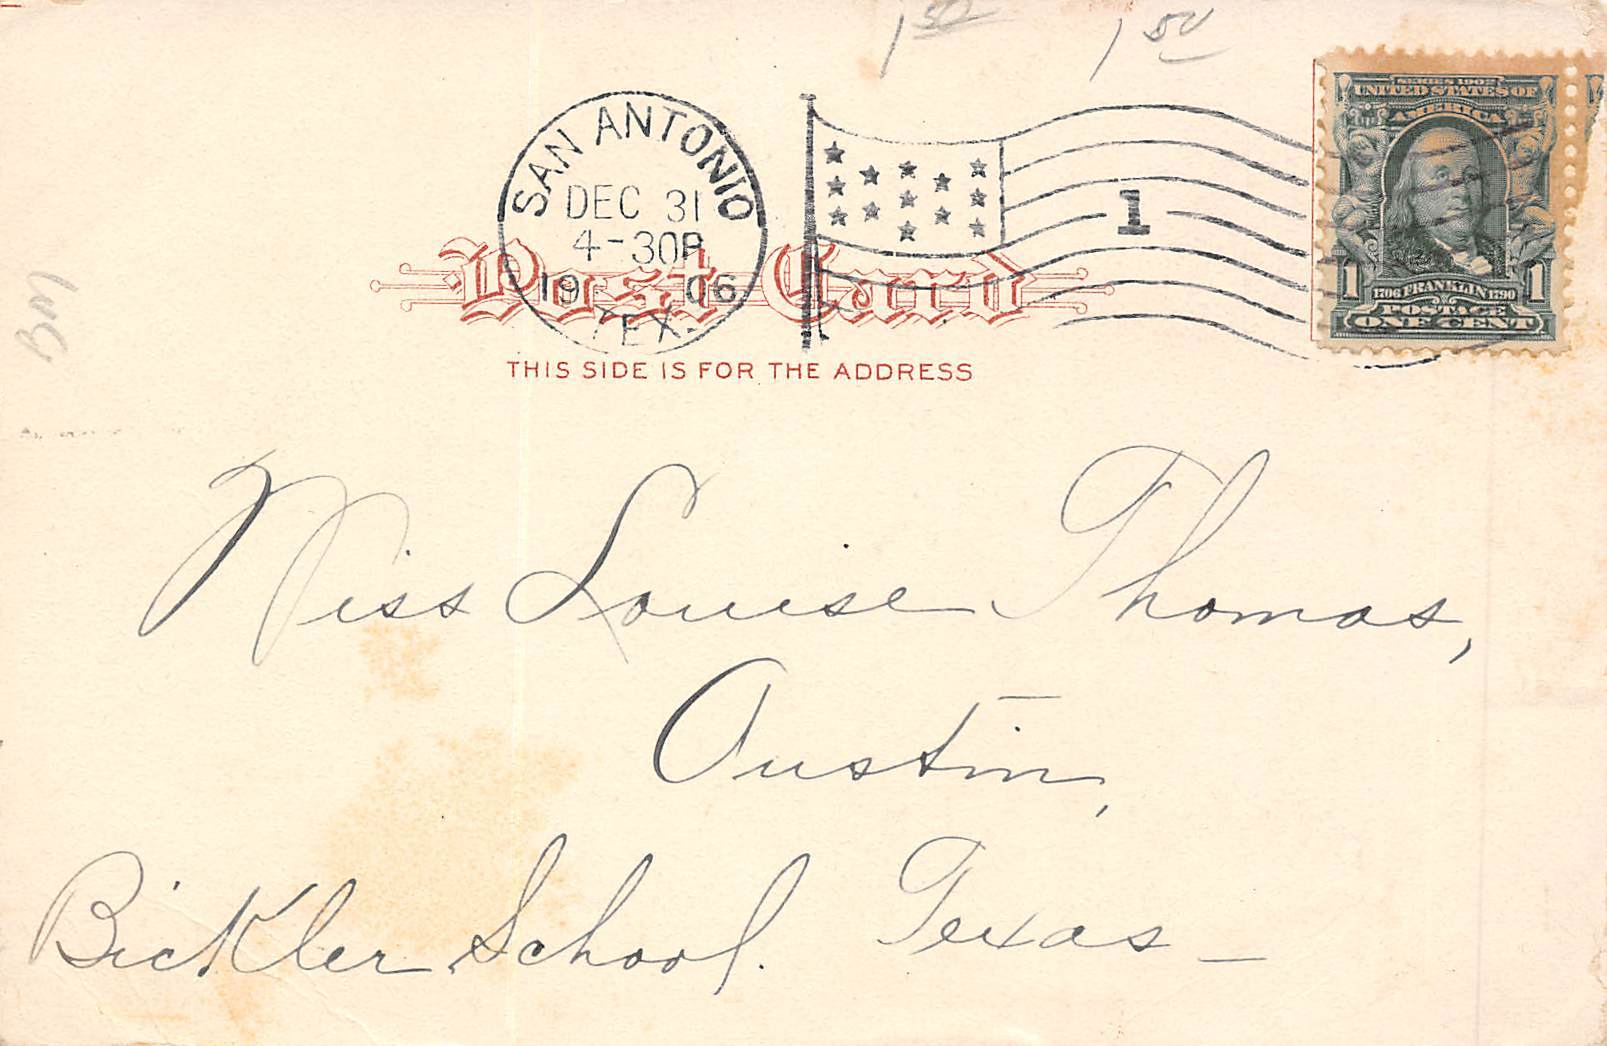 1 50 1 50
SAN ANTONIO
DEC 31
4-30P
19 06
TEX.
1
SERIES 1902
UNITED STATES OF
AMERICA
1 1706 FRANKLIN 1790 1
POSTAGE
ONE CENT
Post Card
THIS SIDE IS FOR THE ADDRESS
Miss Louise Thomas,
Austin,
Texas —
Bickler School.